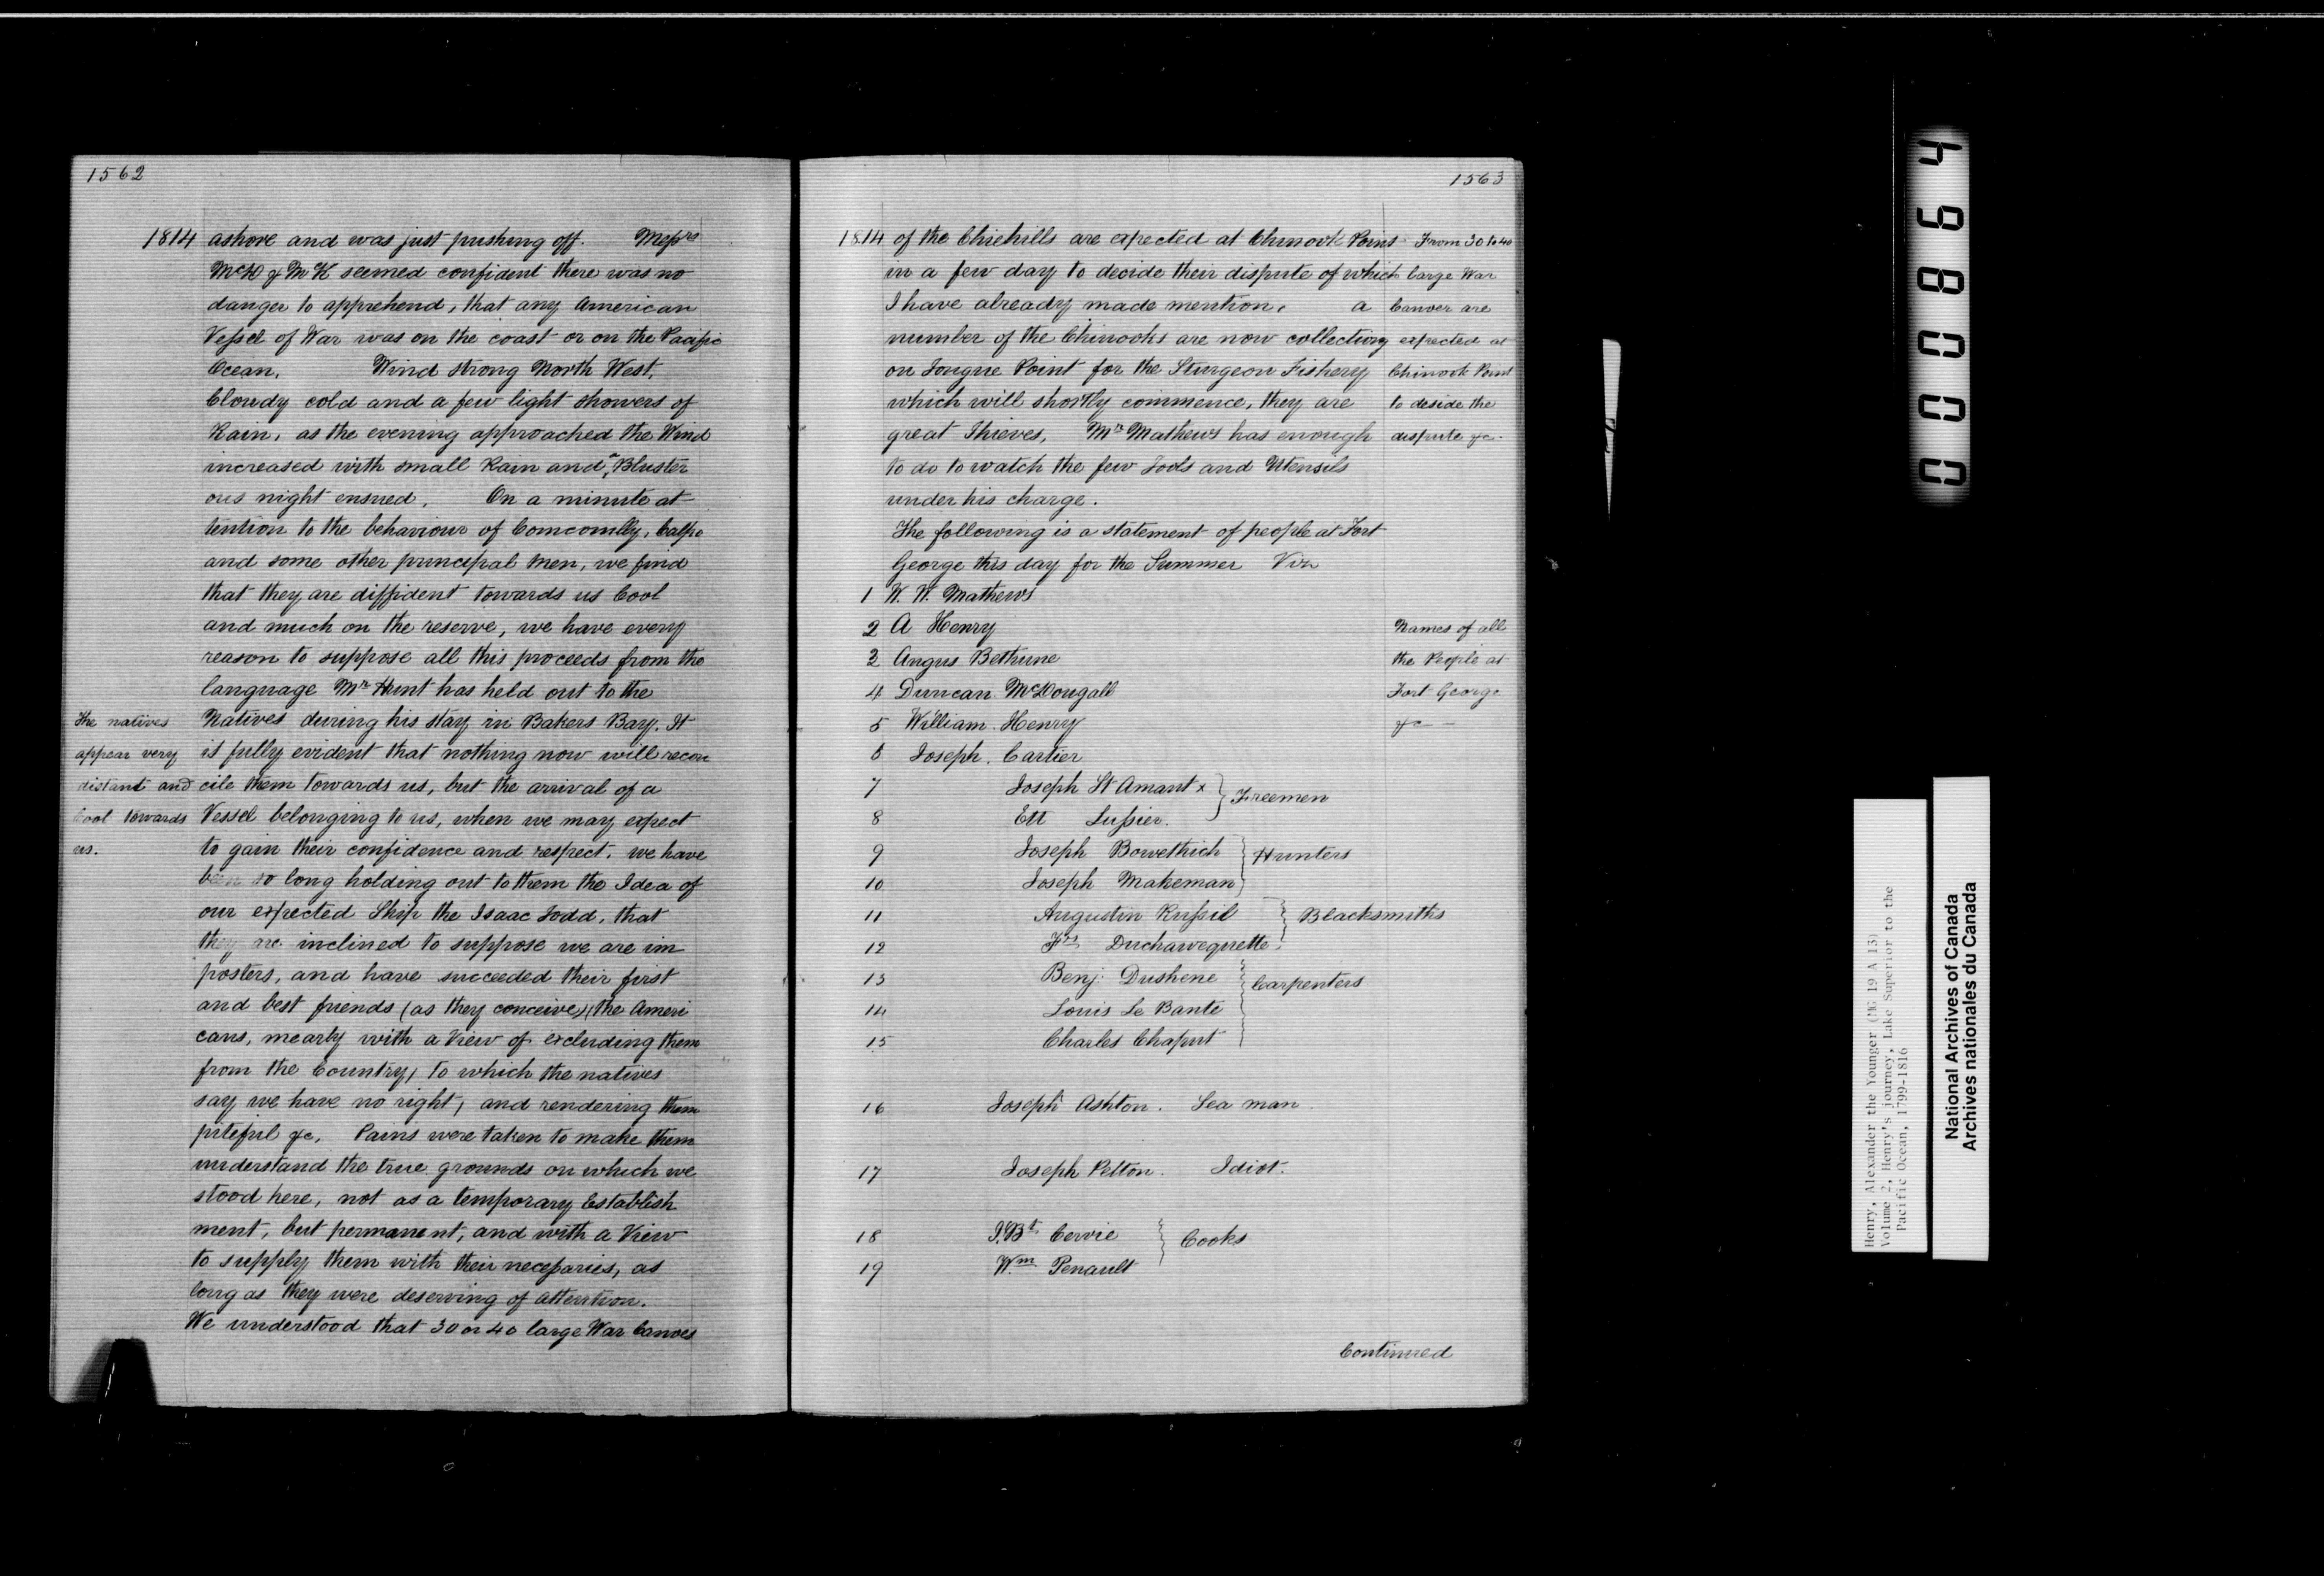 1562
1814 ashore and was just pushing off. Messrs
McD & McK seemed confident there was no
danger to apprehend, that any American
Vessel of War was on the coast or on the Pacific
Ocean. Wind strong North West.
Cloudy cold and a few light showers of
Rain, as the evening approached the Wind
increased with small Rain and a Bluster
ous night ensued. On a minute at
tention to the behaviour of Comcomlly, Calpo
and some other principal men, we find
that they are diffident towards us Cool
and much on the reserve, we have every
reason to suppose all this proceeds from the
language Mr Hunt has held out to the
Natives during his stay in Bakers Bay. It
is fully evident that nothing now will recon
cile them towards us, but the arrival of a
Vessel belonging to us, when we may expect
to gain their confidence and respect. we have
been so long holding out to them the Idea of
our expected Ship the Isaac Todd, that
they are inclined to suppose we are im
posters, and have succeeded their first
and best friends (as they conceive) (the Ameri
cans, mearly with a View of excluding them
from the Country, to which the natives
say we have no right, and rendering them
piteful &c. Pains were taken to make them
understand the true grounds on which we
stood here, not as a temporary Establish
ment, but permanent, and with a View
to supply them with their necessaries, as
long as they were deserving of attention.
We understood that 30 or 40 large War Canoes
The natives
appear very
distant and
Cool towards
us.
1563
1814 of the Chiehills are expected at Chinook Point
in a few day to decide their dispute of which
I have already made mention. a
number of the Chinooks are now collecting
on Tongue Point for the Sturgeon Fishery
which will shortly commence, they are
great Thieves, Mr Mathews has enough
to do to watch the few Tools and Utensils
under his charge.
The following is a statement of people at Fort
George this day for the Summer Viz
From 30 to 40
large War
Canoer are
expected at
Chinook Point
to deside the
dispute &c.
1 W. W. Mathews
2 A Henry
3 Angus Bethune
4 Duncan McDougall
5 William Henry
6 Joseph. Cartier
Names of all
the People at
Fort George
&c –
7 Joseph St Amant x } Freemen
8 Ett Lussier.
9 Joseph Bowethich } Hunters
10 Joseph Makeman
11 Augustin Russil } Blacksmiths
12 Frs Duchawequette
13 Benj: Dushene } Carpenters
14 Louis Le Bante
15 Charles Chaput
16 Joseph Ashton. Sea man.
17 Joseph Pelton. Idiot.
18 J. Bt Cervie } Cooks
19 Wm Penault
Continued
000864
Henry, Alexander the Younger (MG 19 A 13)
Volume 2, Henry's journey, Lake Superior to the
Pacific Ocean, 1799-1816
National Archives of Canada
Archives nationales du Canada